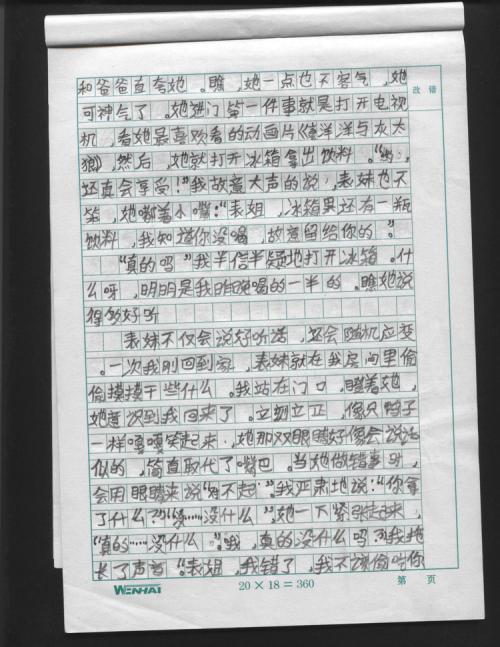 和爸爸直夸她。瞧，她一点也不客气，她
改错
可神气了。她进门第一件事就是打开电视
机，看她最喜欢看的动画片《喜洋洋与灰太
狼》，然后，她就打开冰箱拿出饮料。“哟，
还真会享受！”我故意大声的说，表妹也不
笨，她嘟着小嘴：“表姐，冰箱里还有一瓶
饮料，我知道你没喝，故意留给你的。”
“真的吗”我半信半疑地打开冰箱。什
么呀，明明是我昨晚喝的一半的。瞧她说
得多好听
表妹不仅会说好听话，还会随机应变
。一次我刚回到家，表妹就在我房间里偷
偷摸摸干些什么。我站在门口，瞪着她，
她意识到我回来了。立刻立正，像只鸭子
一样嘎嘎笑起来，她那双眼睛好像会说话
似的，简直取代了嘴巴。当她做错事时，
会用眼睛来说“对不起”。我严肃地说：“你拿
了什么？”“没……没什么”，她一下紧张起来，
“真的……没什么。”“哦，真的没什么吗？”我拖
长了声音“表姐，我错了，我不该偷吃你
WENHAI 20×18=360 第 页